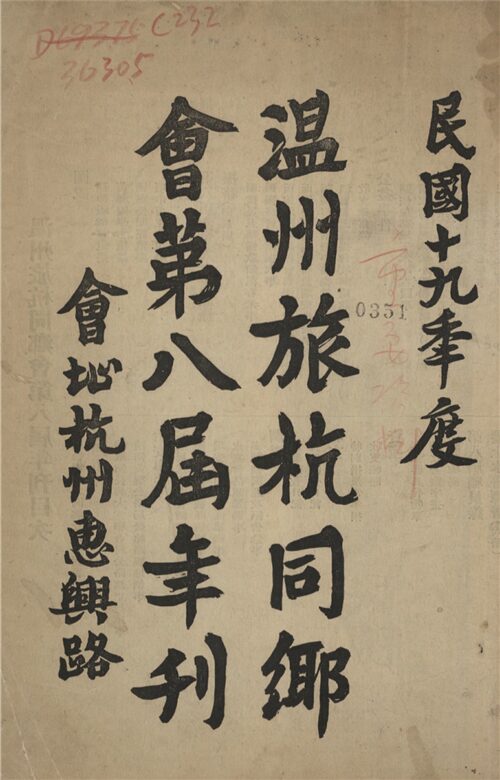 民國十九年度
温州旅杭同鄉
會第八届年刊
會址杭州惠興路
D69376 C232
36305
0351